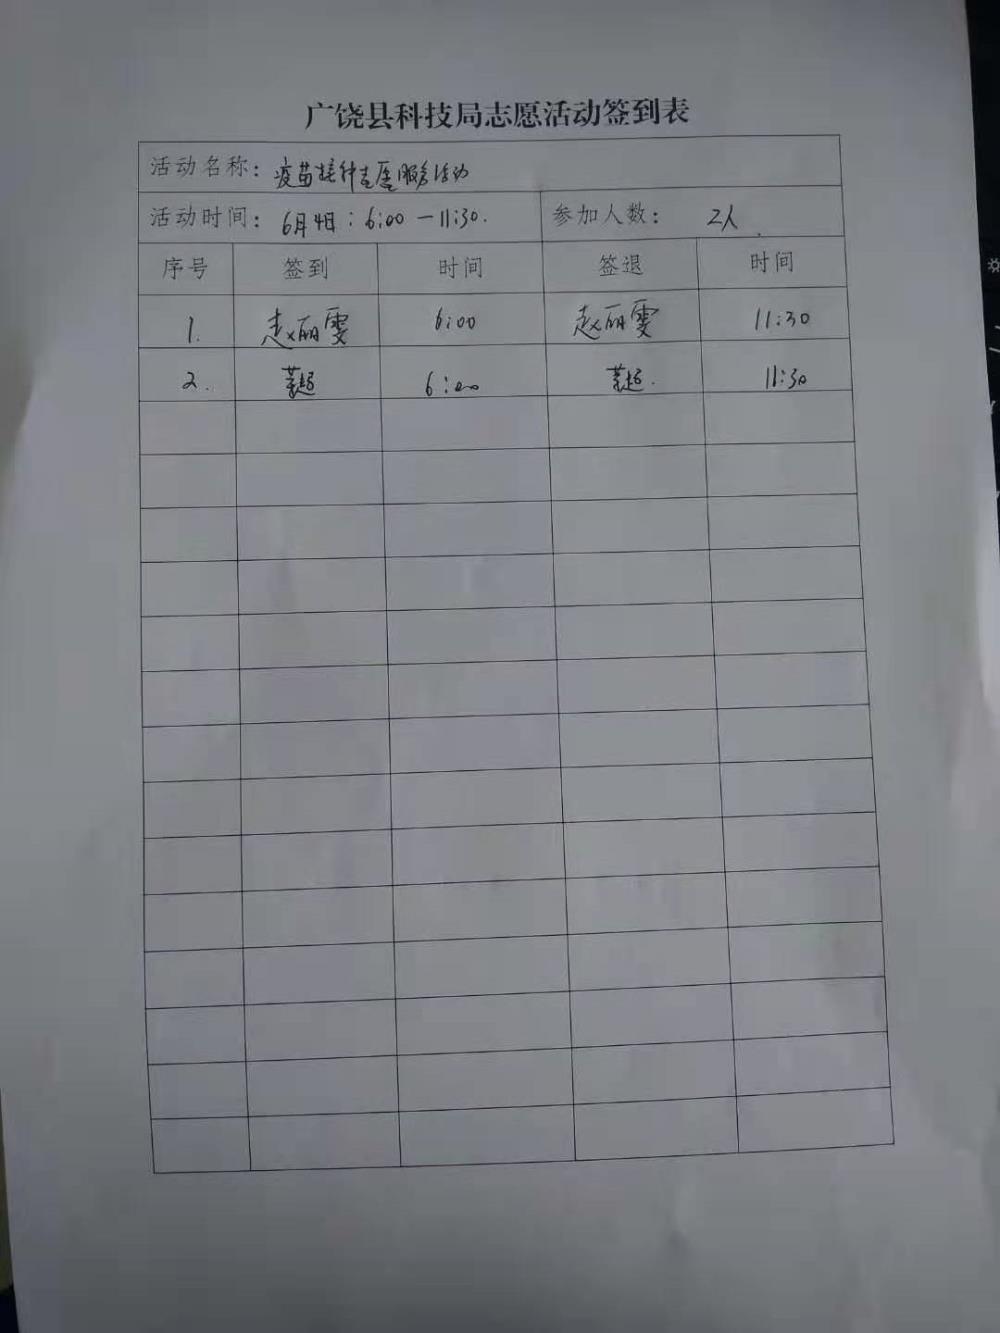 广饶县科技局志愿活动签到表
活动名称：疫苗接种志愿服务活动
活动时间：6月4日：6:00—11:30. 参加人数：2人
序号 签到 时间 签退 时间
1. 赵丽雯 6:00 赵丽雯 11:30
2. 6:00 11:30